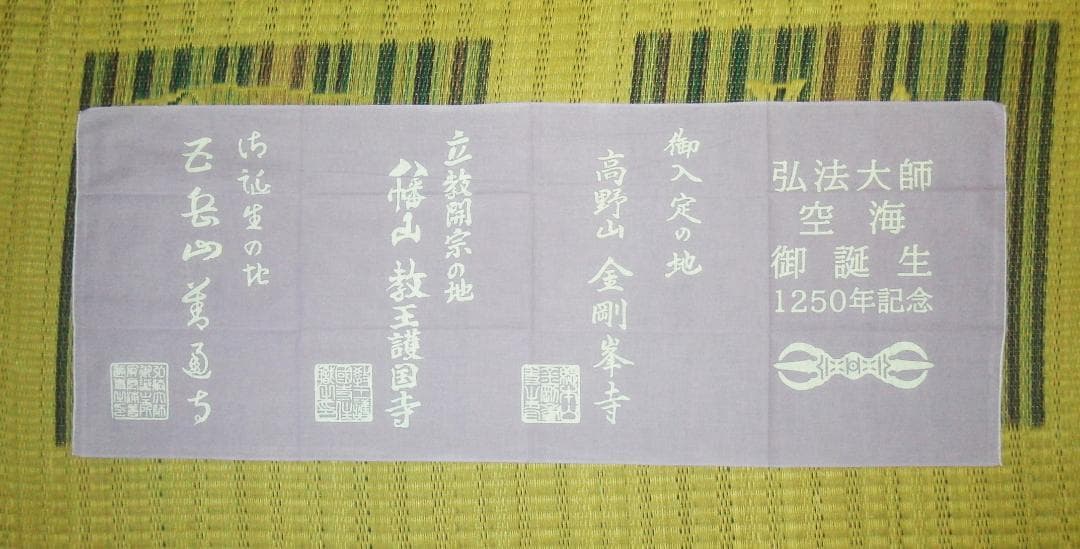 弘法大師
空海
御誕生
1250年記念
御入定の地
高野山 金剛峯寺
立教開宗の地
八幡山 教王護国寺
御誕生の地
五岳山 善通寺